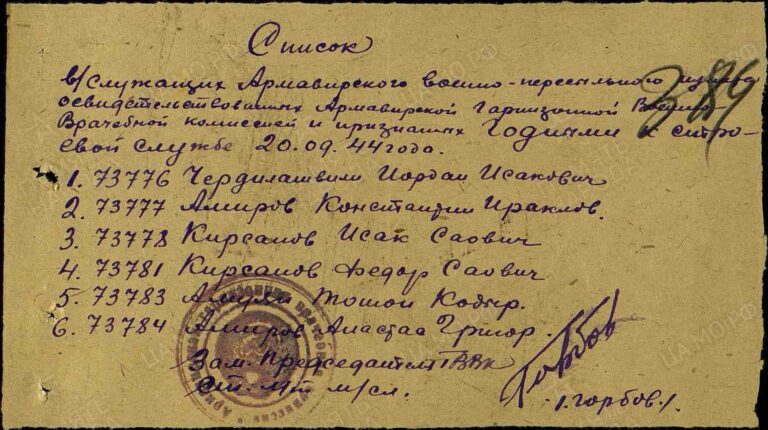 Список
в/служащих Армавирского военно-пересыльного пункта
освидетельствованных Армавирской Гарнизонной Военно-
Врачебной комиссией и признаных Годными к строе-
евой службе 20.09.44 года.
389
1. 73776 Чердилашвили Иордан Исакович
2. 73777 Амиров Константин Ираклов.
3. 73778 Кирсанов Исак Саович
4. 73781 Кирсанов Федор Саович
5. 73783 Амирян
6. 73784 Амиров Григор.
Зам. Председателя ГВВК
Ст. л-т м/сл.
/. Горбов./